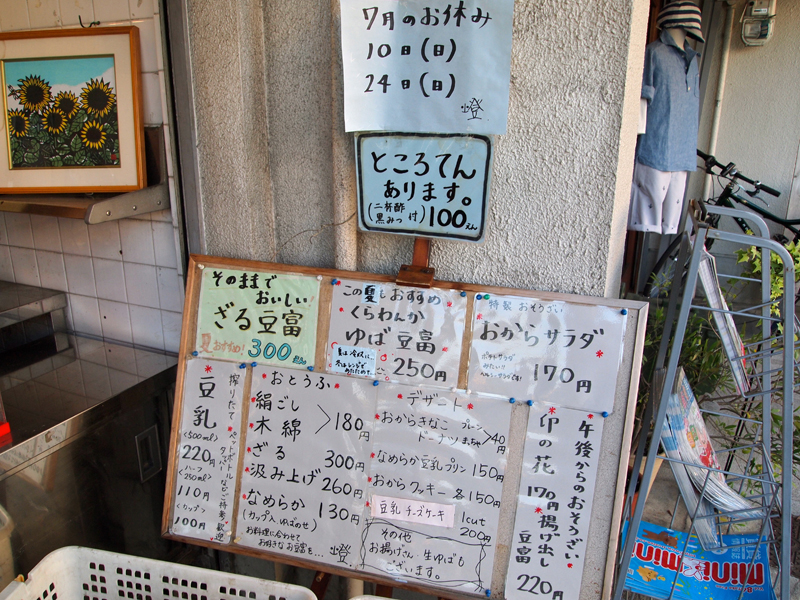 7月のお休み
10日(日)
24日(日)
燈
ところてん
あります。
(二杯酢
黒みつ 付) 100えん
そのままで
おいしい
ざる豆富
夏おすすめ! 300
この夏もおすすめ
くらわんか
ゆば豆富
夏は冷奴に、
250円
特製 おそうざい
おからサラダ
ポテトサラダ
みたい!!
170円
豆乳
搾りたて
<500ml>
220円
ハーフ
<250ml>
110円
<カップ>
100円
ペットボトル
などご持参歓迎
おとうふ
絹ごし
木綿 >180円
ざる 300円
汲み上げ 260円
なめらか 130円
(カップ入 ゆばのせ)
お料理に合わせて
お好きなお豆富を... 燈
デザート
おからきなこ プレーン
ドーナツ まっ茶 >40円
なめらか豆乳プリン 150円
おからクッキー 各150円
豆乳チーズケーキ 1cut
200円
その他
お揚げさん 生ゆばも
ございます。
午後からのおそうざい
卯の花
170円
揚げ出し
豆富
220円
mini
Mini